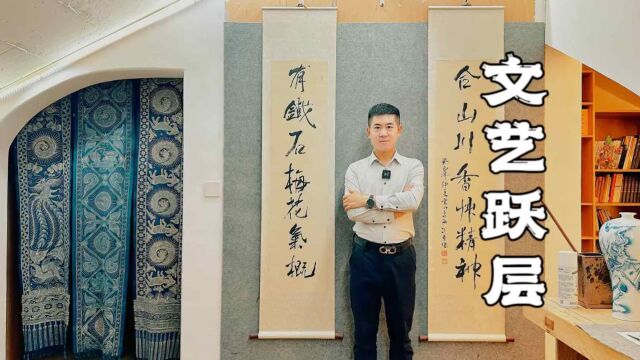 文艺跃层
山川香艸精神
有鐵石梅花氣概